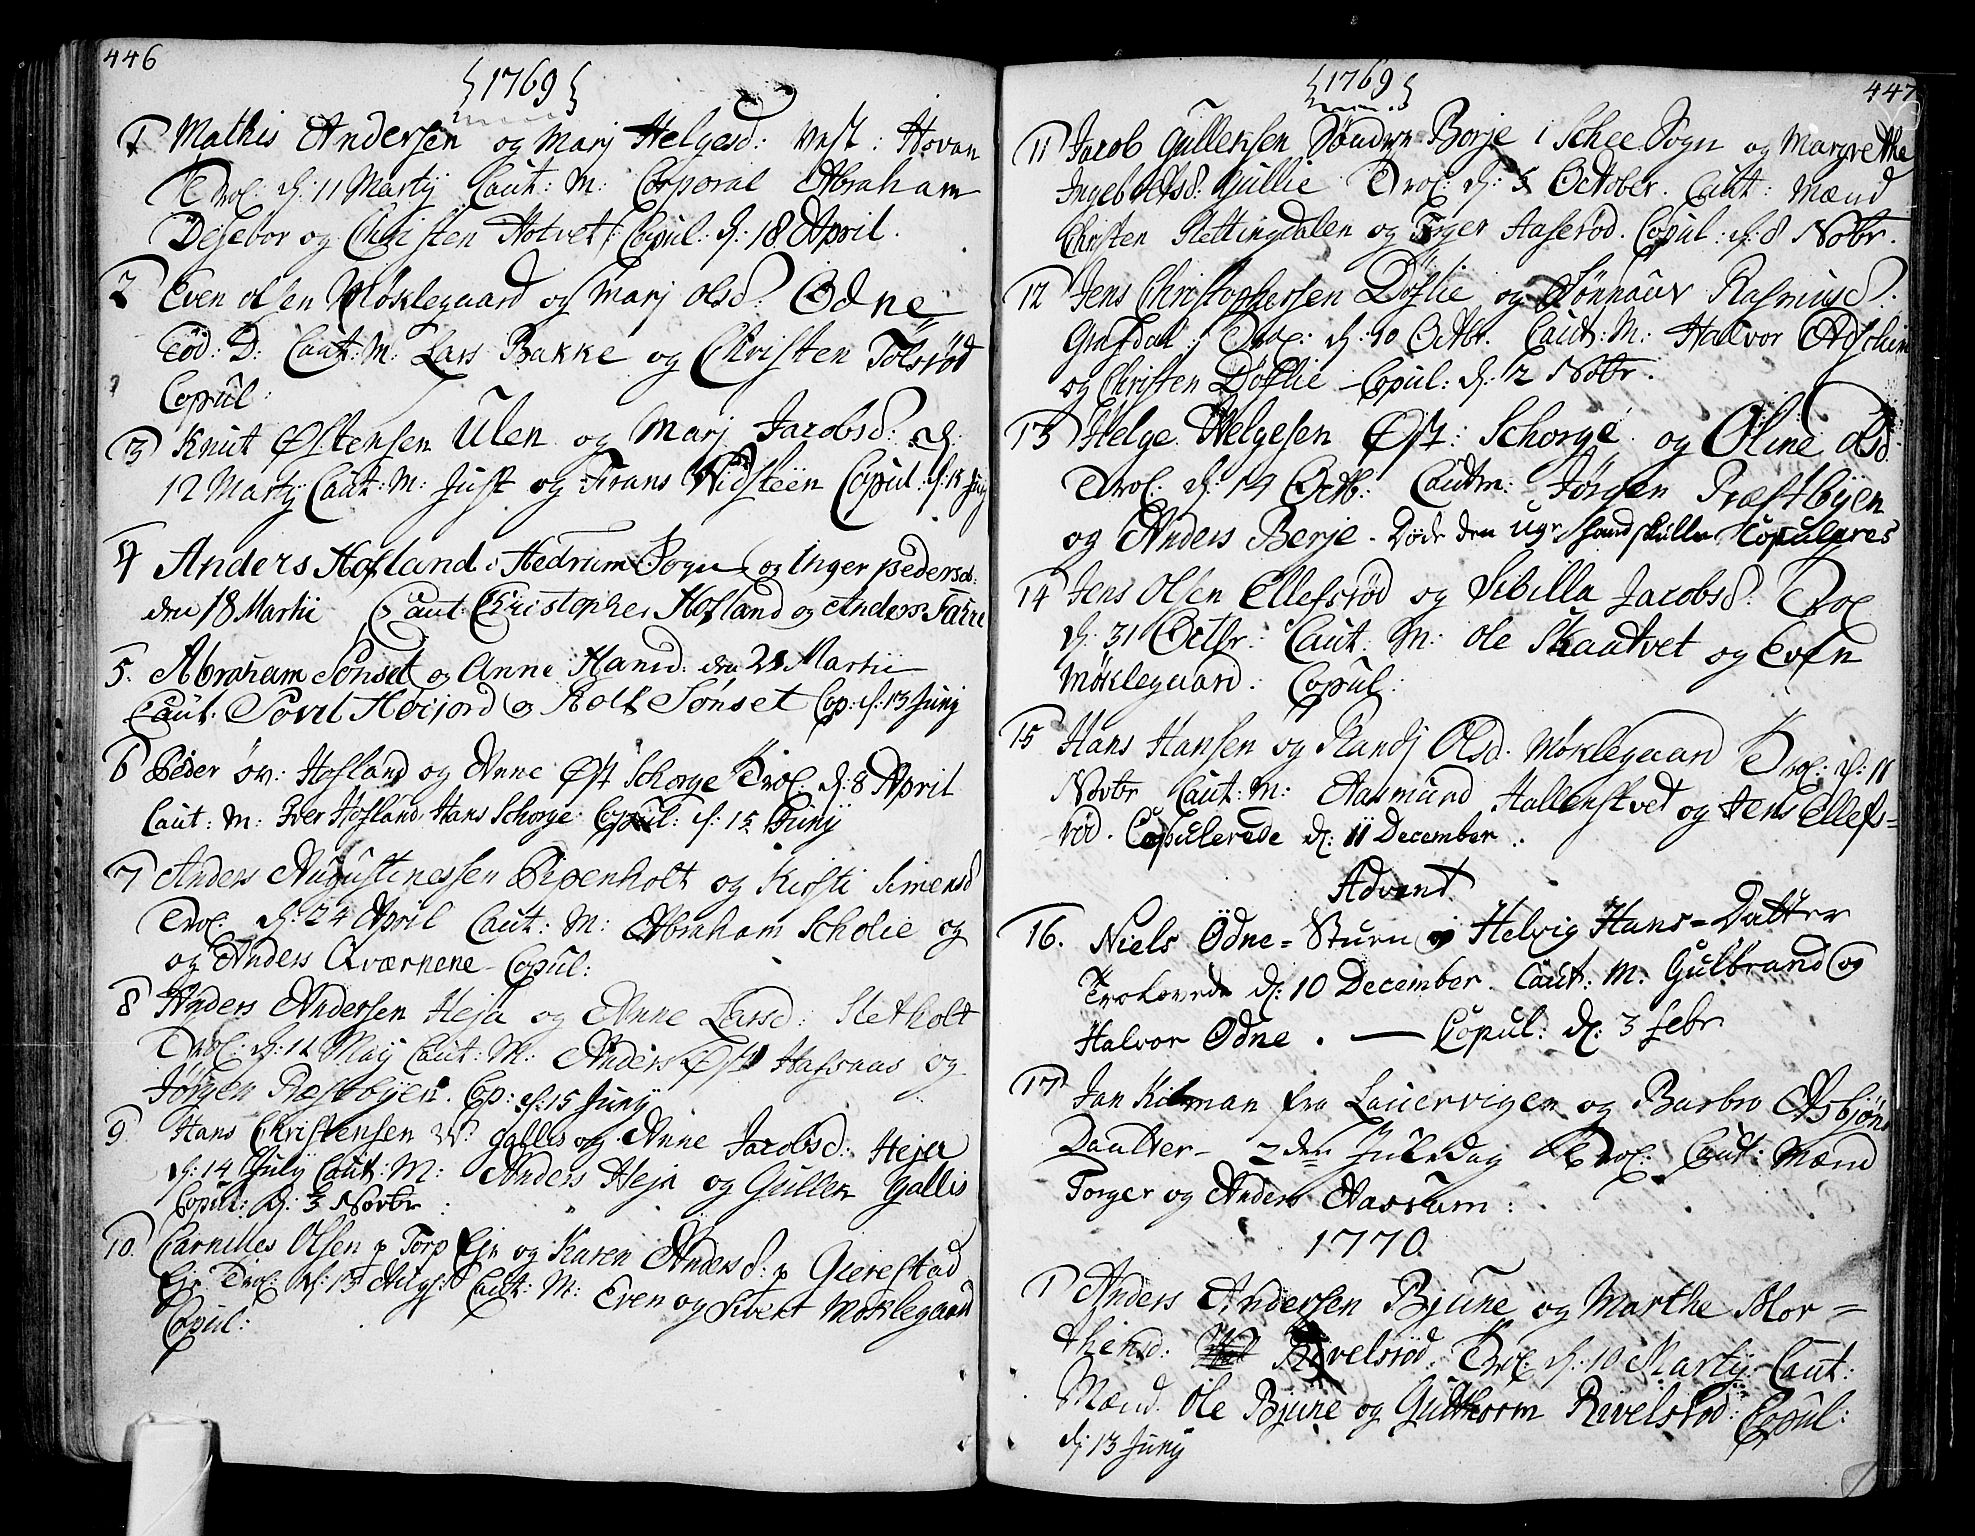 446
1769
1 Mathis Andersen og Marj Helgesd: Vest: Hovan
Trol: d: 11 Martij Caut: M: Corporal Abraham
og Christen Hotvet: Copul: d: 18 April.
2 Even olsen Møklegaard og Marj Olsd: Ødne
Caut: M: Lars Bakke og Christen Tolsrød
Copul:
3 Knut Østensen Ulen og Marj Jacobsd: d:
12 Martij Caut: M: Just og Frans Vidsteen Copul: d: 15 Junj
4 Anders Hofland i Hedrum Sogn og Inger Pedersd:
den 18 Martii Caut: Christopher Hofland og Anders
5. Abraham Sønset og Anne Hansd: den 21 Martii
Caut. Rolf Sønset Cop: d: 13 Junj
6 Peder øv: Hofland og Anne Øst Schorge Trol: d: 8 April
Caut: M: Iver Hofland, Hans Schorge Copul: d: 15 Junij
7 Anders Augustinessen Pipenholt og Kirsti Simensd
Trol: d: 24 April Caut: M: Abraham Scholie og
og Anders Qværnene - Copul:
8 Anders Andersen Heja og Anne Larsd: Sletholt
Trol: d: 12 May Caut: M: Anders Øst Hafsaas og
Jørgen Præstbyen. Cop: d: 15 Junij
9 Hans Christensen V: Gallis og Anne Jacobsd: Heja
d: 14 Julij Caut: M: Anders Heja og Gullek Gallis
Copul: d: 3 Novbr:
10. Carnilles Olsen p Torp Eje og Karen Andersd: p Gierestad
Eje Trol: d: 13 Augst Caut: M: Even og Sivert Moklegaard
Copul:
447
1769
11 Jacob Gulleksen Søndre Borje i Schee Sogn og Margrethe
Ingebretsd: Gullie Trol: d: 5 October. Caut: Mænd
Christen Slettingdalen og Torger Haserød. Copul: d: 8 Novbr.
12 Jens Christophersen Døflie og Rasmusd:
Trol: d: 10 Octbr. Caut: M: Halvor
og Christen Døflie - Copul: d: 12 Novbr.
13 Helge Helgesen Øst: Schorge og Oline Olsd:
Trol: d: 14 Octb: Cautm: Jørgen Præstbyen
og Anders Berje - Døde den Uge hand skulle Copuleres
14 Jens Olsen Ellefsrød og Sibilla Jacobsd: Trol
d: 31 Octbr: Caut: M: Ole Skautvet og Even
Møklegaard: Copul:
15 Hans Hansen og Randj Olsd: Møklegaard Trol: d: 11
Novbr Caut: M: Aasmund Hallenstvet og Jens Ellefs=
rød. Copulerede d: 11 December.
Advent
16. Niels Ødne=Stuen og Helvig Hans=Datter
Trolovede d: 10 December. Caut: M: Gulbrand og
Halvor Ødne. - Copul: d: 3 Febr
17 Jan Kilman fra Lauervigen og Barbro Asbjøns
Daatter - 2den Juledag Trol: Caut: Mænd
Torger og Anders Aassum:
1770.
1 Anders Andersen Bjune og Marthe Mor=
thensd: Rivelsrød. Trol: d: 10 Martij Caut:
Mænd. Ole Bjune og Gutthorm Rivelsrød: Copul:
d: 13 Junij